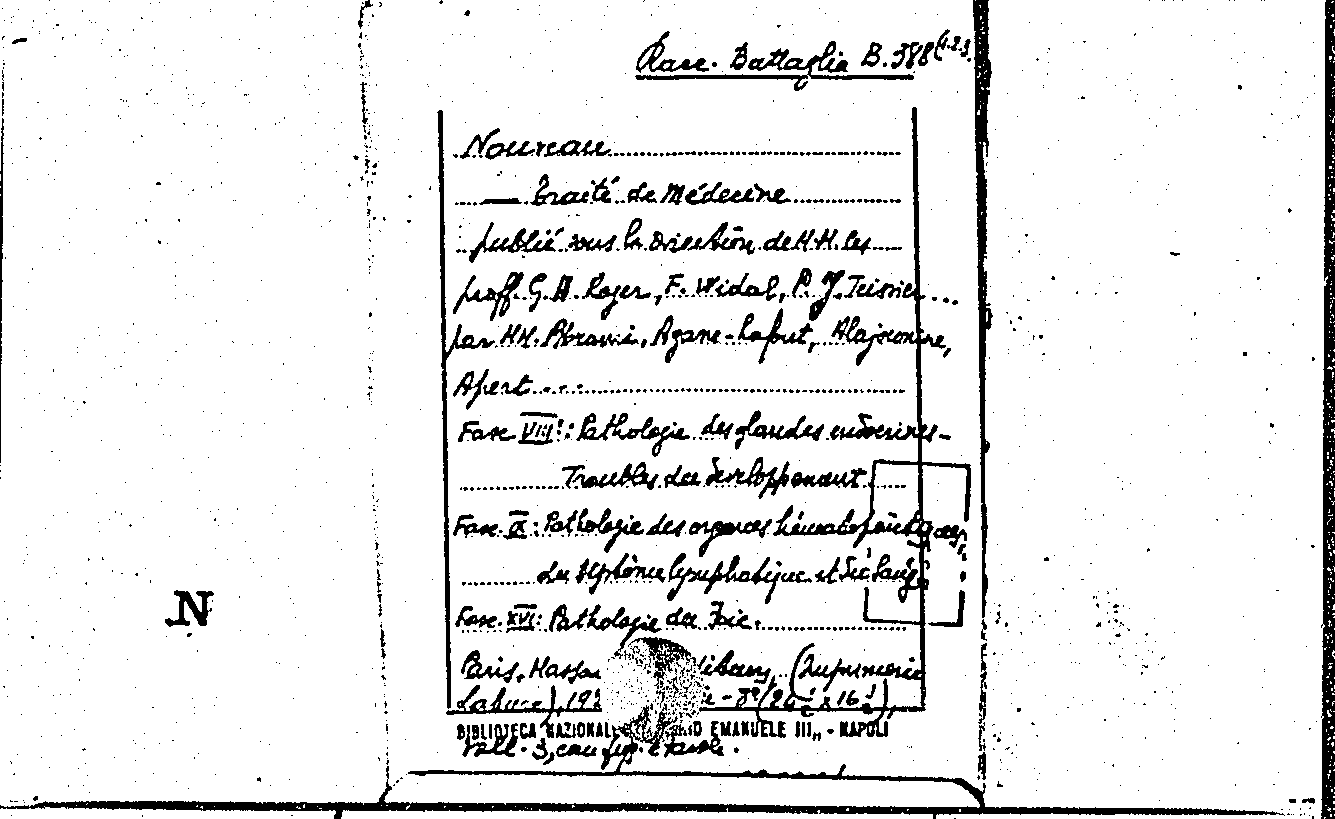 Racc. Battaglia B. 388 (1.2.3.
Nouveau
— Traité de Médecine
publié sous la direction de M.M. les
proff. G. H. Roger, F. Widal, P. J. Teissier ...
par MM. Abrami, Agasse-Lafont, Alajouanine,
Apert ....
Fasc. VIII: Pathologie des glandes endocrines-
Troubles du développement.
Fasc. IX: Pathologie des organes hématopoiétiques,
du système lymphatique et
Fasc. XVI: Pathologie du Foie.
N
Paris, (Imprimerie
Lahure), 8° (26 x 16
BIBLIOTECA EMANUELE III„ - NAPOLI
Voll. 3, con fig. e tavole.